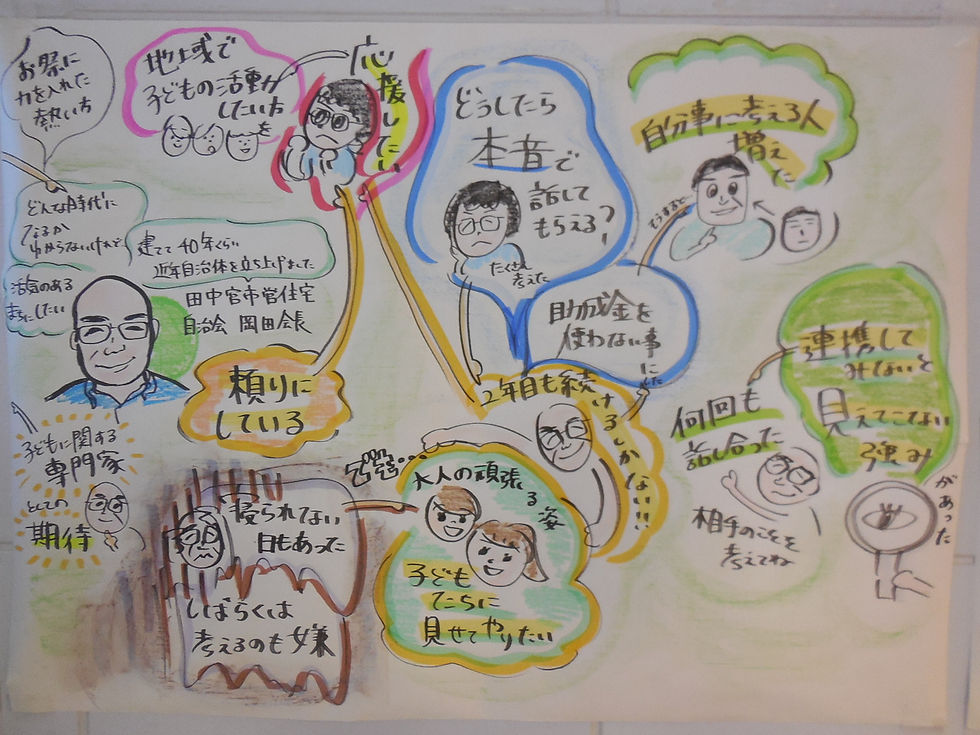 お祭に
力を入れた
熱い方
地域で
子どもの活動を
したい方
応援したい
どんな時代に
なるか
わからないけれど
活気のある
まちにしたい
建てて40年くらい
近年自治体を立ち上げました
田中宮市営住宅
自治会 岡田会長
頼りに
している
子どもに関する
専門家
としての
期待
どうしたら
本音で
話して
もらえる?
たくさん
考えた
助成金を
使わない事
にした
そうすると…
自分事に考える人
増えた
2年目も続けるしかない!!!
寝られない
日もあった
しばらくは
考えるのも嫌
大人の頑張る姿
子ども
たちに
見せてやりたい
何回も
話し合った
相手のことを
考えてね
連携して
みないと
見えてこない
強み
があった